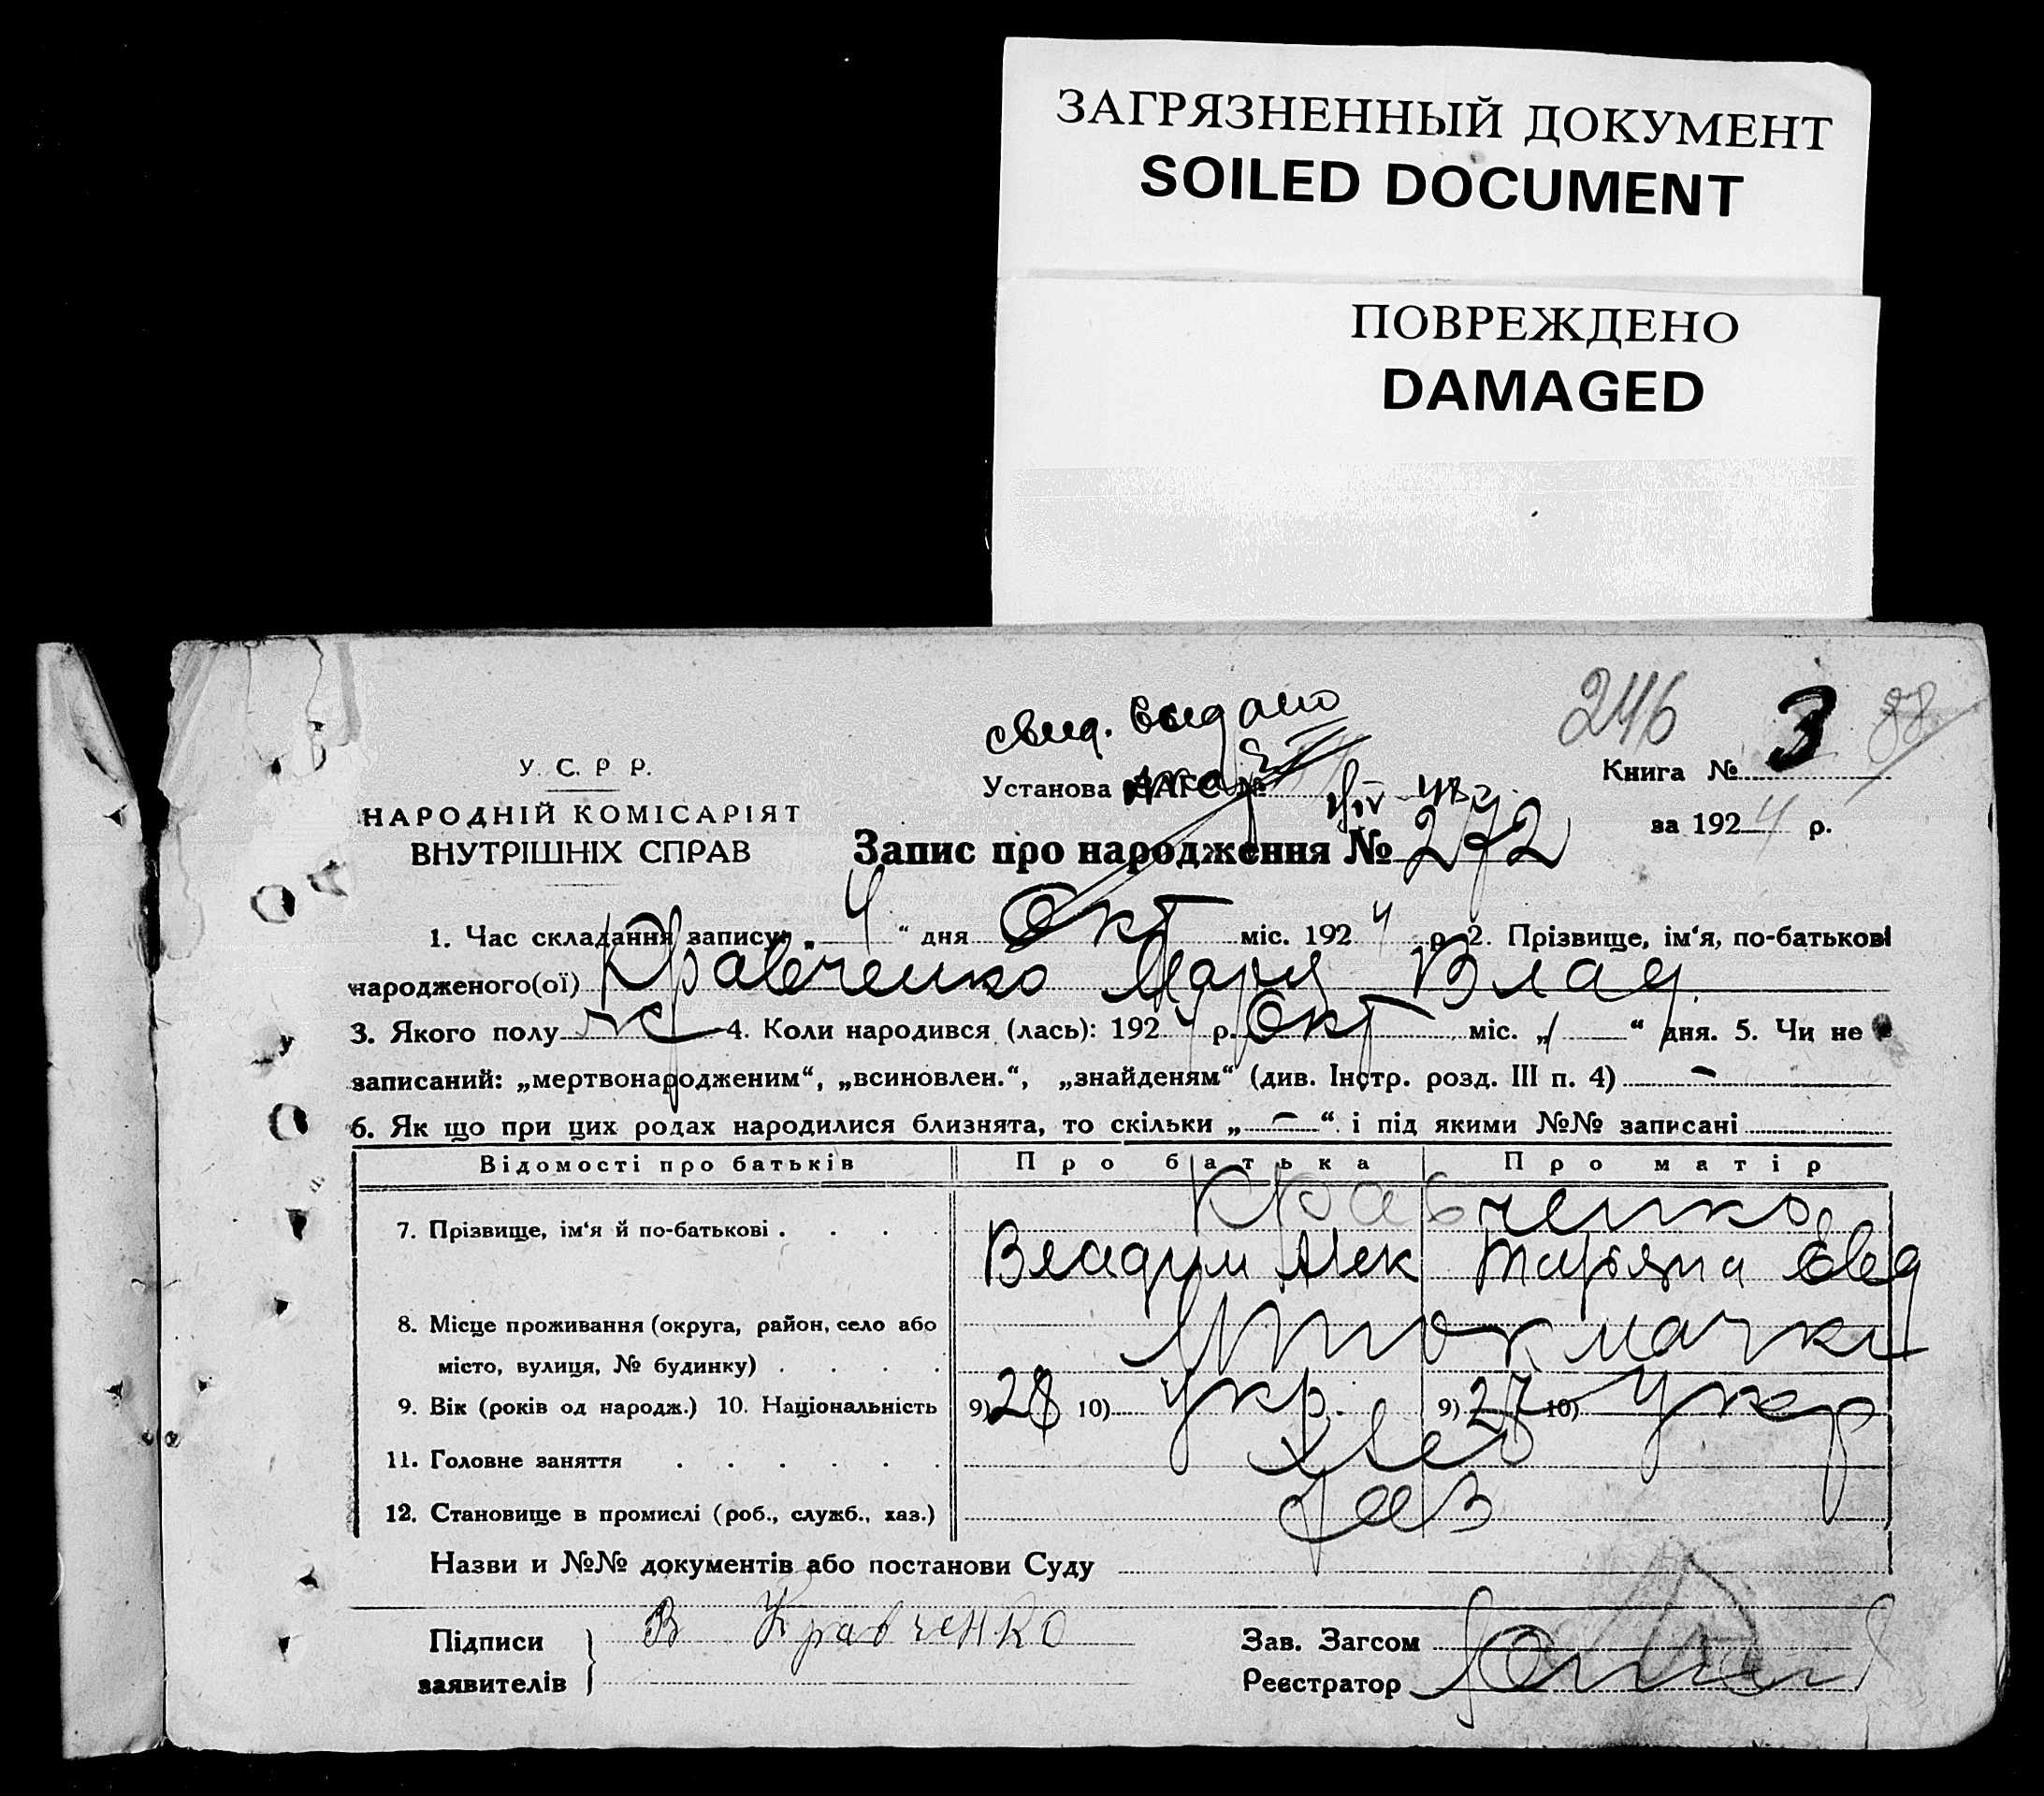 ЗАГРЯЗНЕННЫЙ ДОКУМЕНТ
SOILED DOCUMENT
ПОВРЕЖДЕНО
DAMAGED
246 3 88
свид. выдано
У. С. Р. Р.
Установа ЗАГС №
Книга №
НАРОДНІЙ КОМІСАРІЯТ
ВНУТРІШНІХ СПРАВ
за 1924 р.
Запис про народження № 272
1. Час складання запису: „4“ дня Окт міс. 1924 р. 2. Прізвище, ім‘я, по-батькові
народженого(ої) Кравченко Мария Влад.
3. Якого полу ж 4. Коли народився (лась): 1924 р. Окт міс. „1“ дня. 5. Чи не
записаний: „мертвонародженим“, „всиновлен.“, „знайденям“ (див. Інстр. розд. III п. 4) –
6. Як що при цих родах народилися близнята, то скільки „–“ і під якими №№ записані
Відомості про батьків Про батька Про матір
Кравченко
7. Прізвище, ім‘я й по-батькові
Владим Алек Татьяна Евд
8. Місце проживання (округа, район, село або
місто, вулиця, № будинку)
Токмачка
9. Вік (років од народж.) 10. Національність 9) 28 10) Укр. 9) 27 10) Укр
11. Головне заняття Хлеб
12. Становище в промислі (роб., служб., хаз.) Хаз
Назви и №№ документів або постанови Суду
Підписи заявителів
В Кравченко
Зав. Загсом
Реєстратор